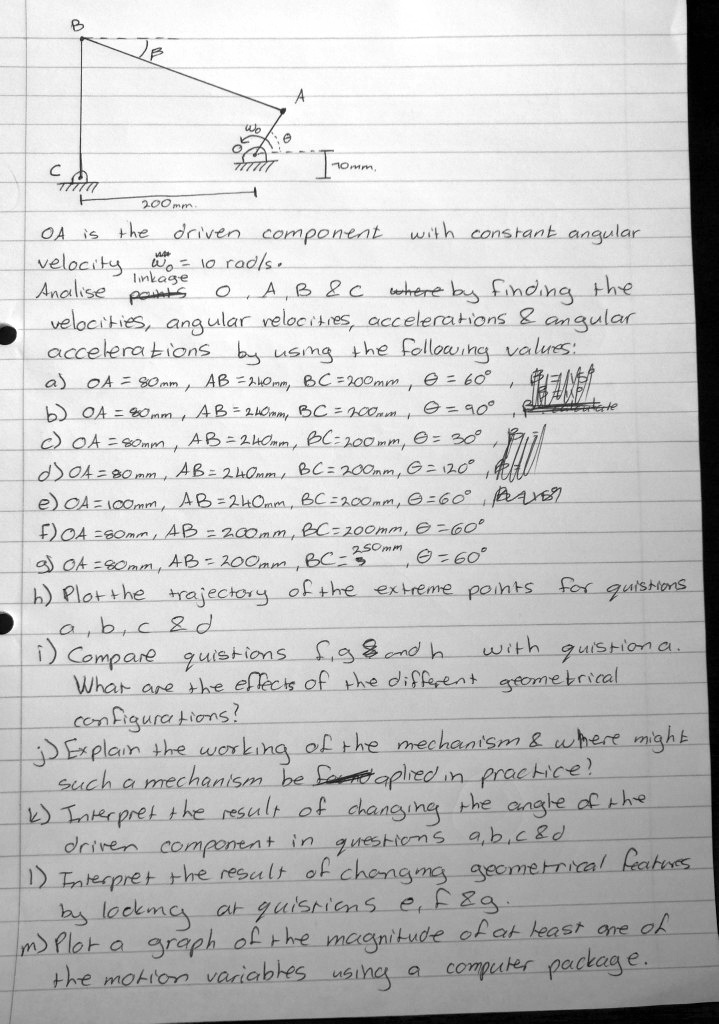 B
β
A
ω₀
θ
O
C
70mm.
200mm.
OA is the driven component with constant angular
velocity ω₀ = 10 rad/s.
linkage
Analise points O, A, B & C where by finding the
velocities, angular velocities, accelerations & angular
accelerations by using the following values:
a) OA = 80mm, AB = 240mm, BC = 200mm, θ = 60°,
b) OA = 80mm, AB = 240mm, BC = 200mm, θ = 90°,
c) OA = 80mm, AB = 240mm, BC = 200mm, θ = 30°,
d) OA = 80mm, AB = 240mm, BC = 200mm, θ = 120°,
e) OA = 100mm, AB = 240mm, BC = 200mm, θ = 60°,
f) OA = 80mm, AB = 200mm, BC = 200mm, θ = 60°
g) OA = 80mm, AB = 200mm, BC = 250mm, θ = 60°
h) Plot the trajectory of the extreme points for quistions
a, b, c & d
i) Compare quistions f, g & and h with quistion a.
What are the effects of the different geometrical
configurations?
j) Explain the working of the mechanism & where might
such a mechanism be found aplied in practice?
k) Interpret the result of changing the angle of the
driven component in questions a, b, c & d
l) Interpret the result of changing geometrical features
by looking at quistions e, f & g.
m) Plot a graph of the magnitude of at least one of
the motion variables using a computer package.